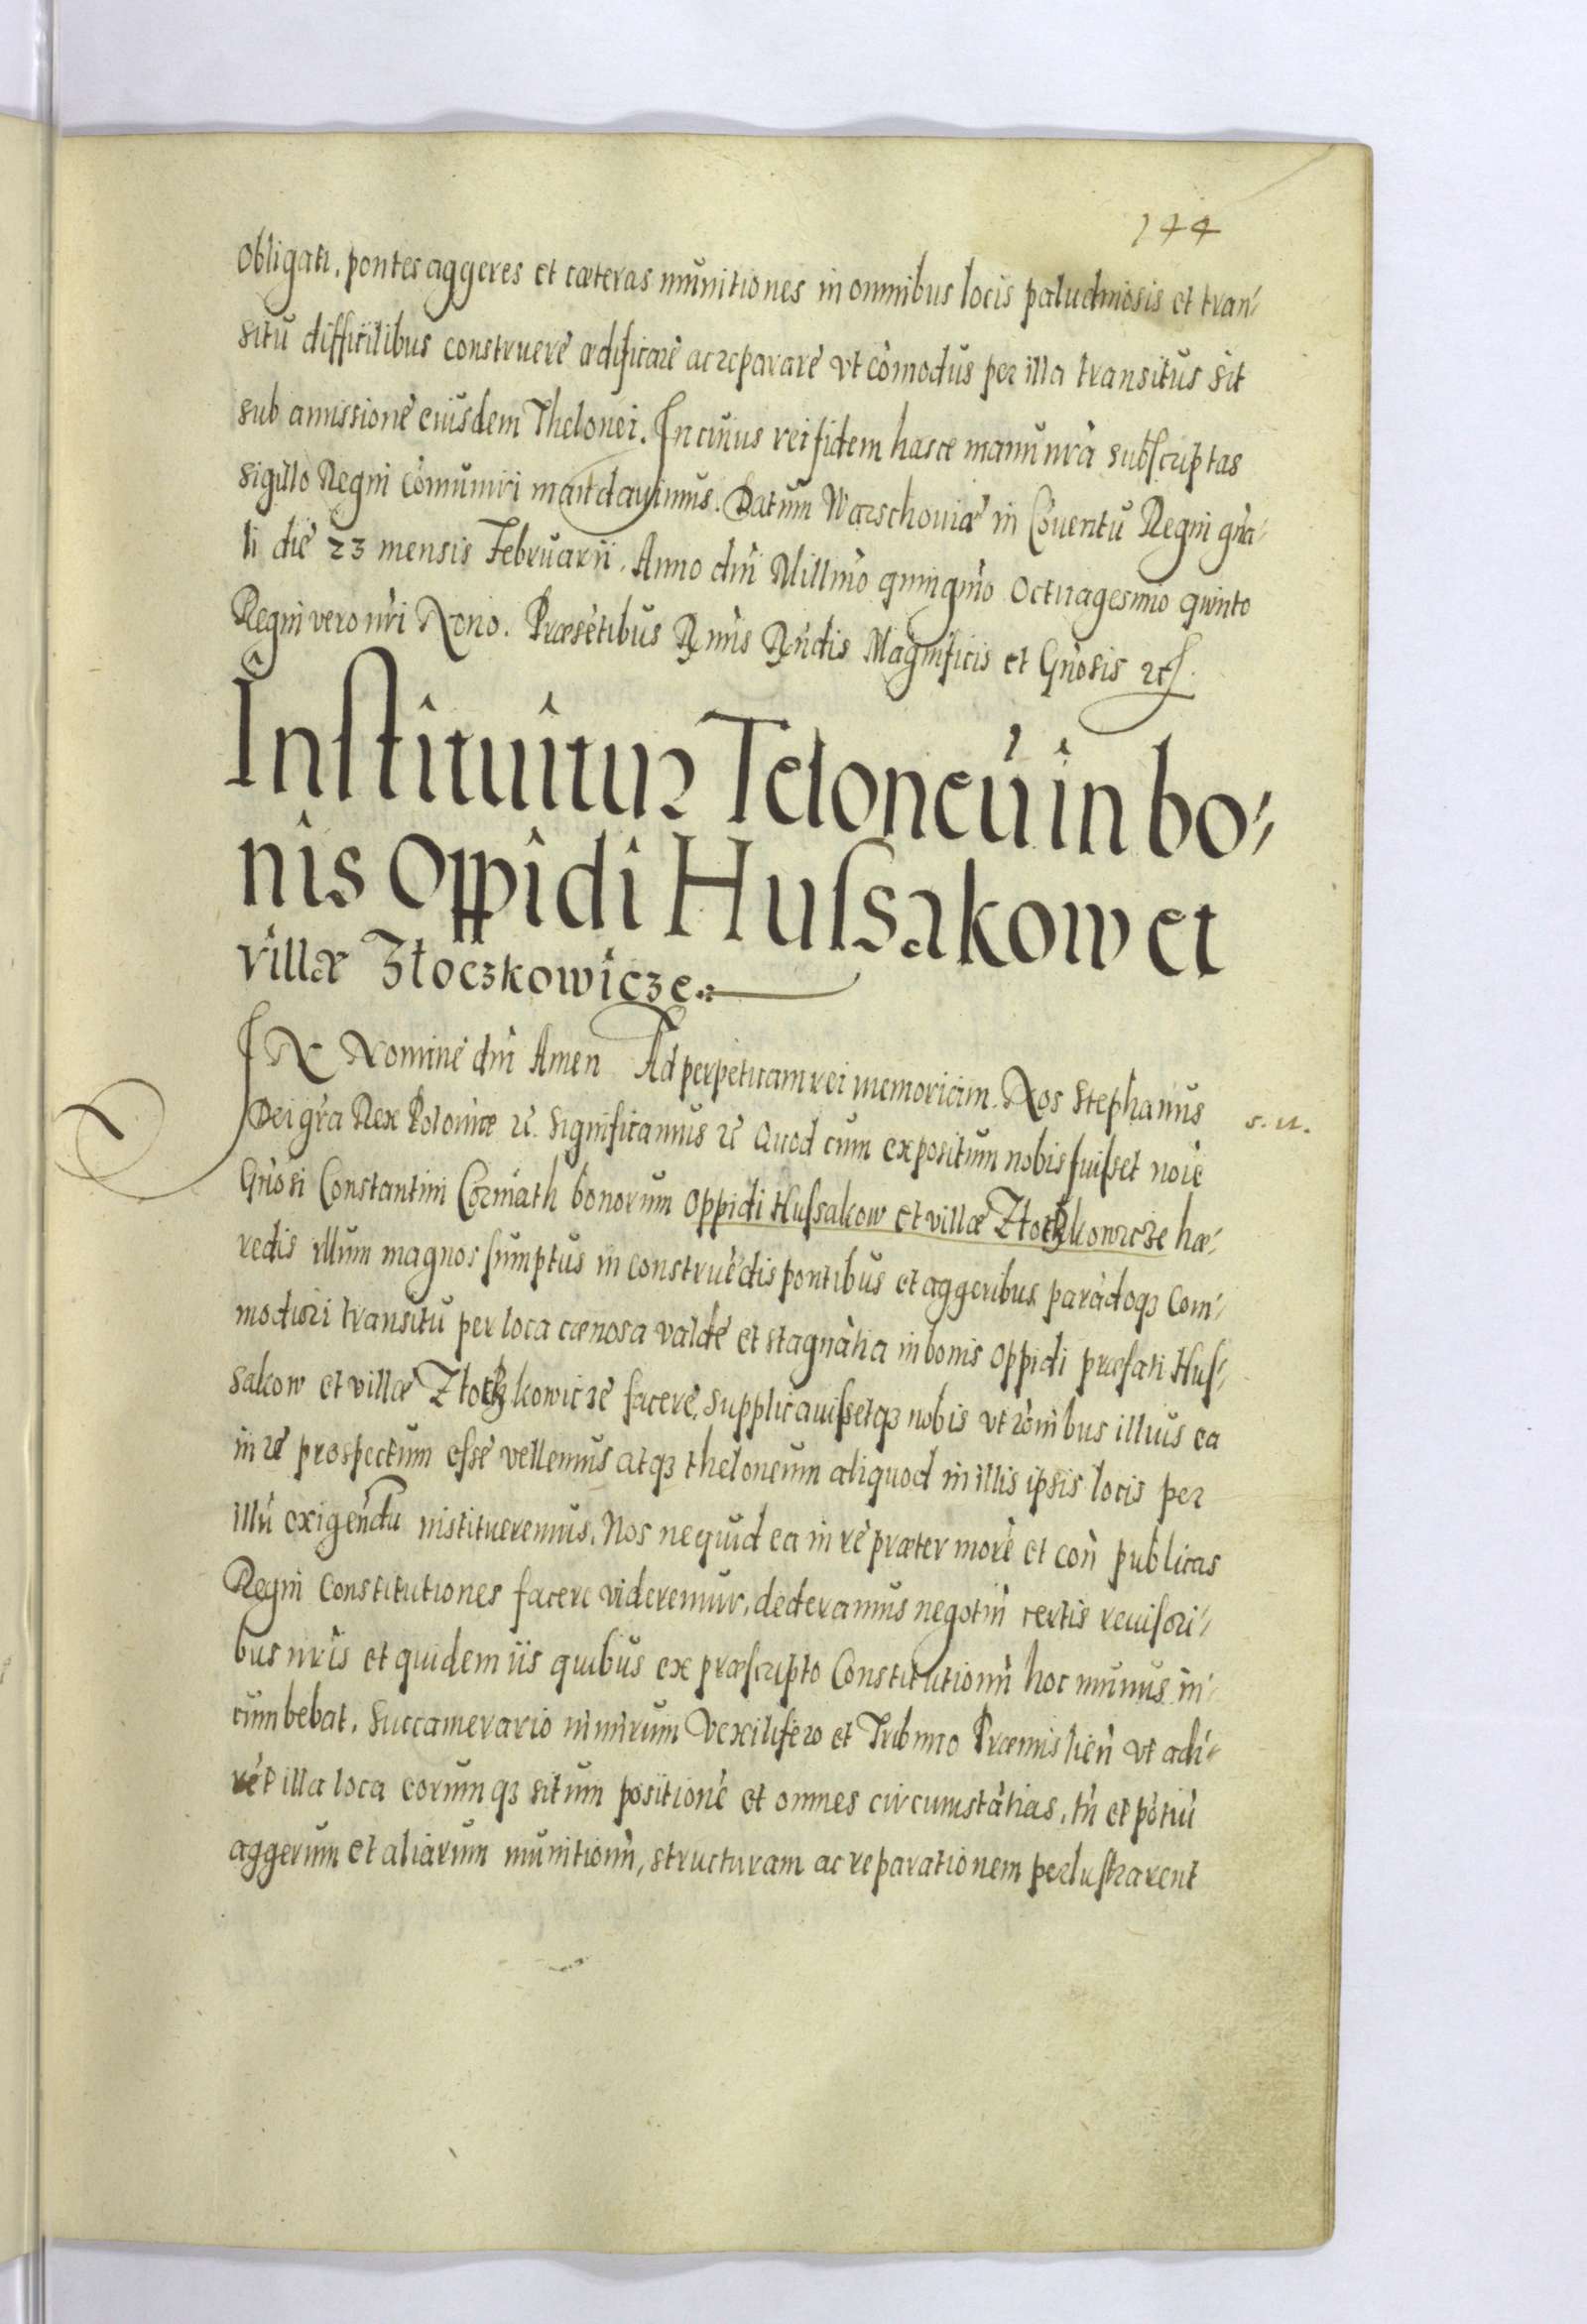 144
obligati, pontes aggeres et cæteras munitiones in omnibus locis paludinosis et tran-
situ difficilibus construere ædificare ac reparare vt cõmodus per illa transitus sit
sub amissione eiusdem Thelonei. In cuius rei fidem hasce manu nrã subscriptas
sigillo Regni cõmuniri mandauimus. Datum Warschouiæ in Cõuentu Regni gñа-
li die 23 mensis Februarii. Anno dñi Millmõ quingmõ Octuagesimo quinto
Regni vero nrĩ Nono. Præsẽtibus Rmis Rndis Magnificis et Gñosis etc.
Instituitur Teloneũ in bo-
nis Oppidi Hussakow et
villæ Złoczkowicze
IN Nomine dñi Amen Ad perpetuam rei memoriam. Nos Stephanus
s. n.
Dei grã Rex Poloniæ etc. Significamus etc. Quod cum expositum nobis fuisset noĩe
Gñosi Constantini Corniath bonorum oppidi Hussakow et villæ Złoczkowicze hæ-
redis illum magnos sumptus in construẽdis pontibus et aggeribus parãdoq3 com-
modiori transitu per loca cænosa valde et stagnãtia in bonis oppidi præfati Hus-
sakow et villæ Złoczkowicze facere, supplicauissetq3 nobis vt rõnibus illius ea
in re prospectum esse vellemus atq3 theloneum aliquod in illis ipsis locis per
illũ exigendũ institueremus. Nos ne quid ea in re præter morẽ et coñ publicas
Regni Constitutiones facere videremur, dederamus negotiũ certis reuisori-
bus nrĩs et quidem iis quibus ex præscripto Constitutionũ hoc munus in-
cumbebat. Succamerario nimirum Vexilifero et Tribuno Præmislieñ vt adi-
rẽt illa loca eorumq3 situm positionẽ et omnes circumstãtias, tũ et põtiũ
aggerum et aliarum munitionũ, structuram ac reparationem perlustrarent